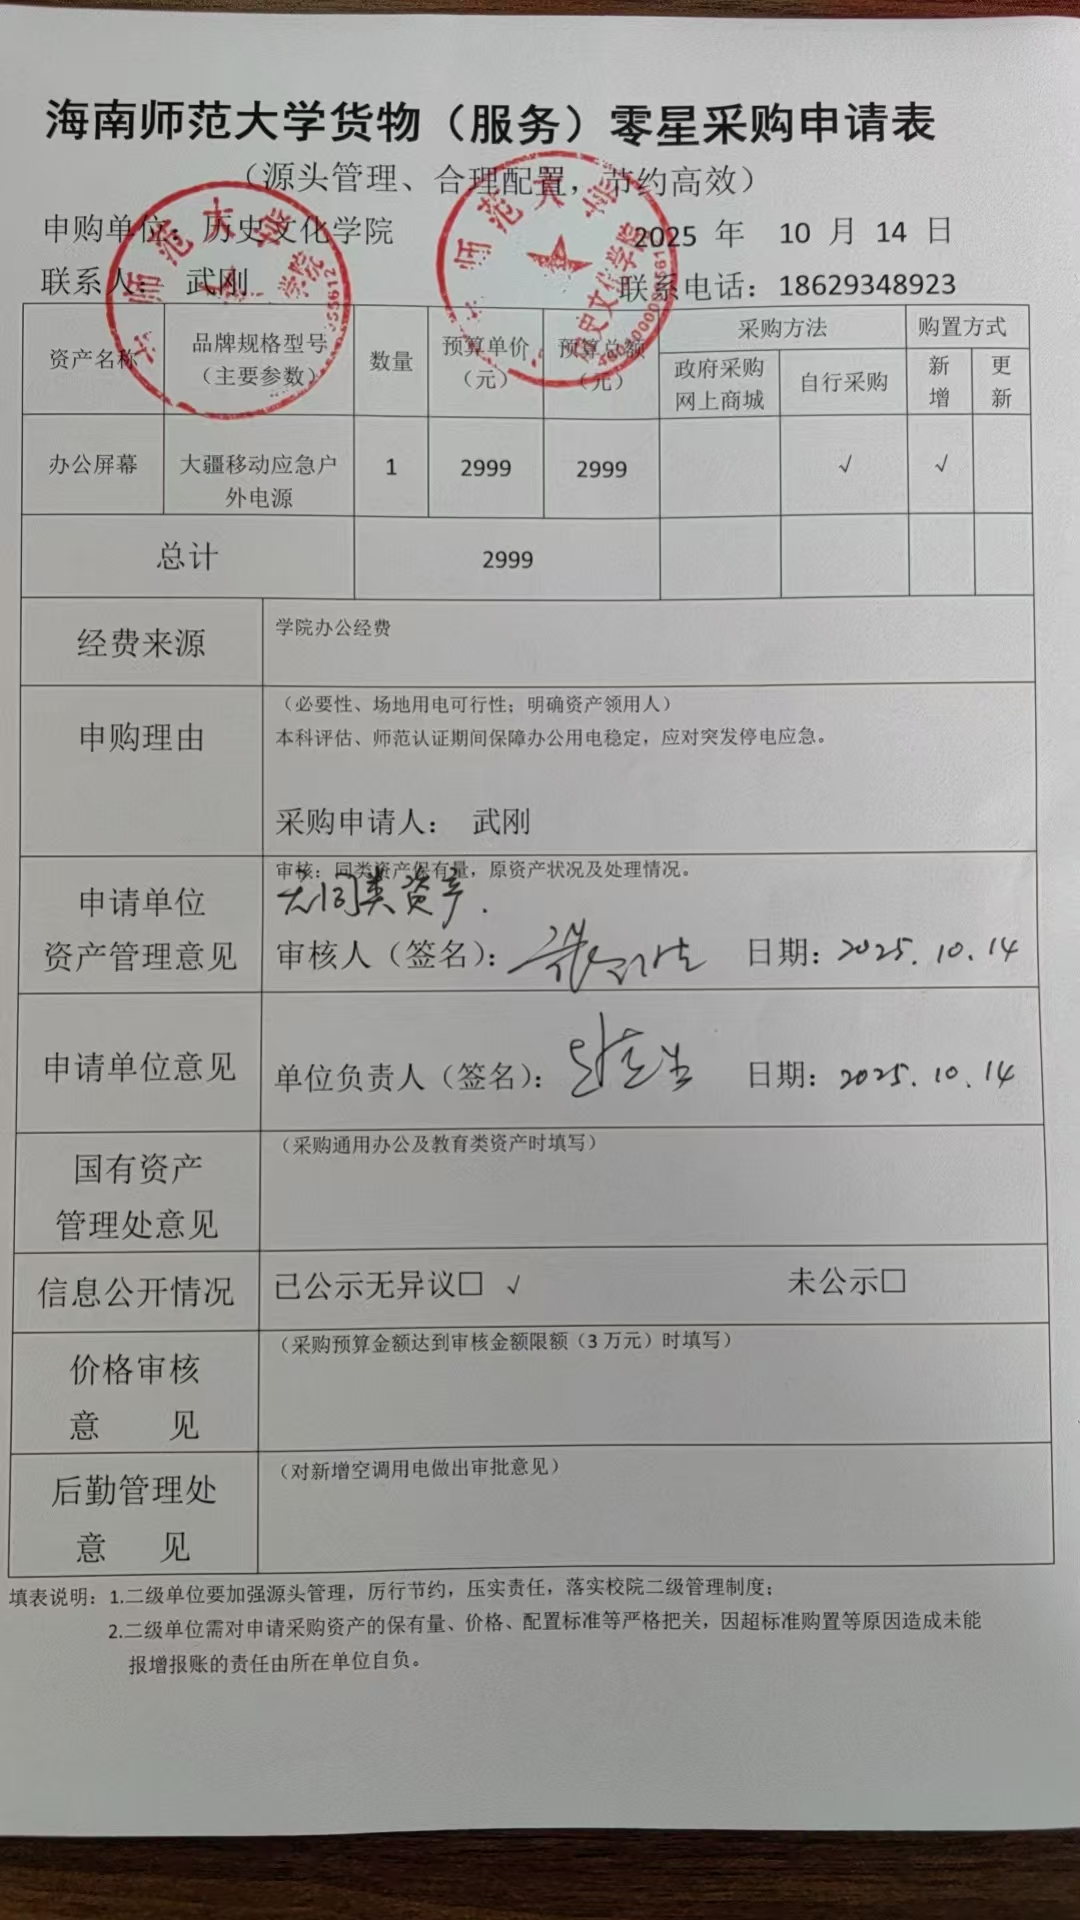 海南师范大学货物（服务）零星采购申请表
（源头管理、合理配置，节约高效）
申购单位：历史文化学院 2025 年 10 月 14 日
联系人： 武刚 联系电话：18629348923
资产名称 品牌规格型号（主要参数） 数量 预算单价（元） 预算总额（元） 采购方法 购置方式
政府采购网上商城 自行采购 新增 更新
办公屏幕 大疆移动应急户外电源 1 2999 2999 √ √
总计 2999
经费来源 学院办公经费
申购理由 （必要性、场地用电可行性；明确资产领用人）
本科评估、师范认证期间保障办公用电稳定，应对突发停电应急。
采购申请人： 武刚
申请单位
资产管理意见
审核：同类资产保有量，原资产状况及处理情况。
无同类资产.
审核人（签名）： 日期：2025.10.14
申请单位意见 单位负责人（签名）： 日期：2025.10.14
国有资产
管理处意见
（采购通用办公及教育类资产时填写）
信息公开情况 已公示无异议□ √ 未公示□
价格审核
意 见
（采购预算金额达到审核金额限额（3 万元）时填写）
后勤管理处
意 见
（对新增空调用电做出审批意见）
填表说明：1.二级单位要加强源头管理，厉行节约，压实责任，落实校院二级管理制度；
2.二级单位需对申请采购资产的保有量、价格、配置标准等严格把关，因超标准购置等原因造成未能
报增报账的责任由所在单位自负。